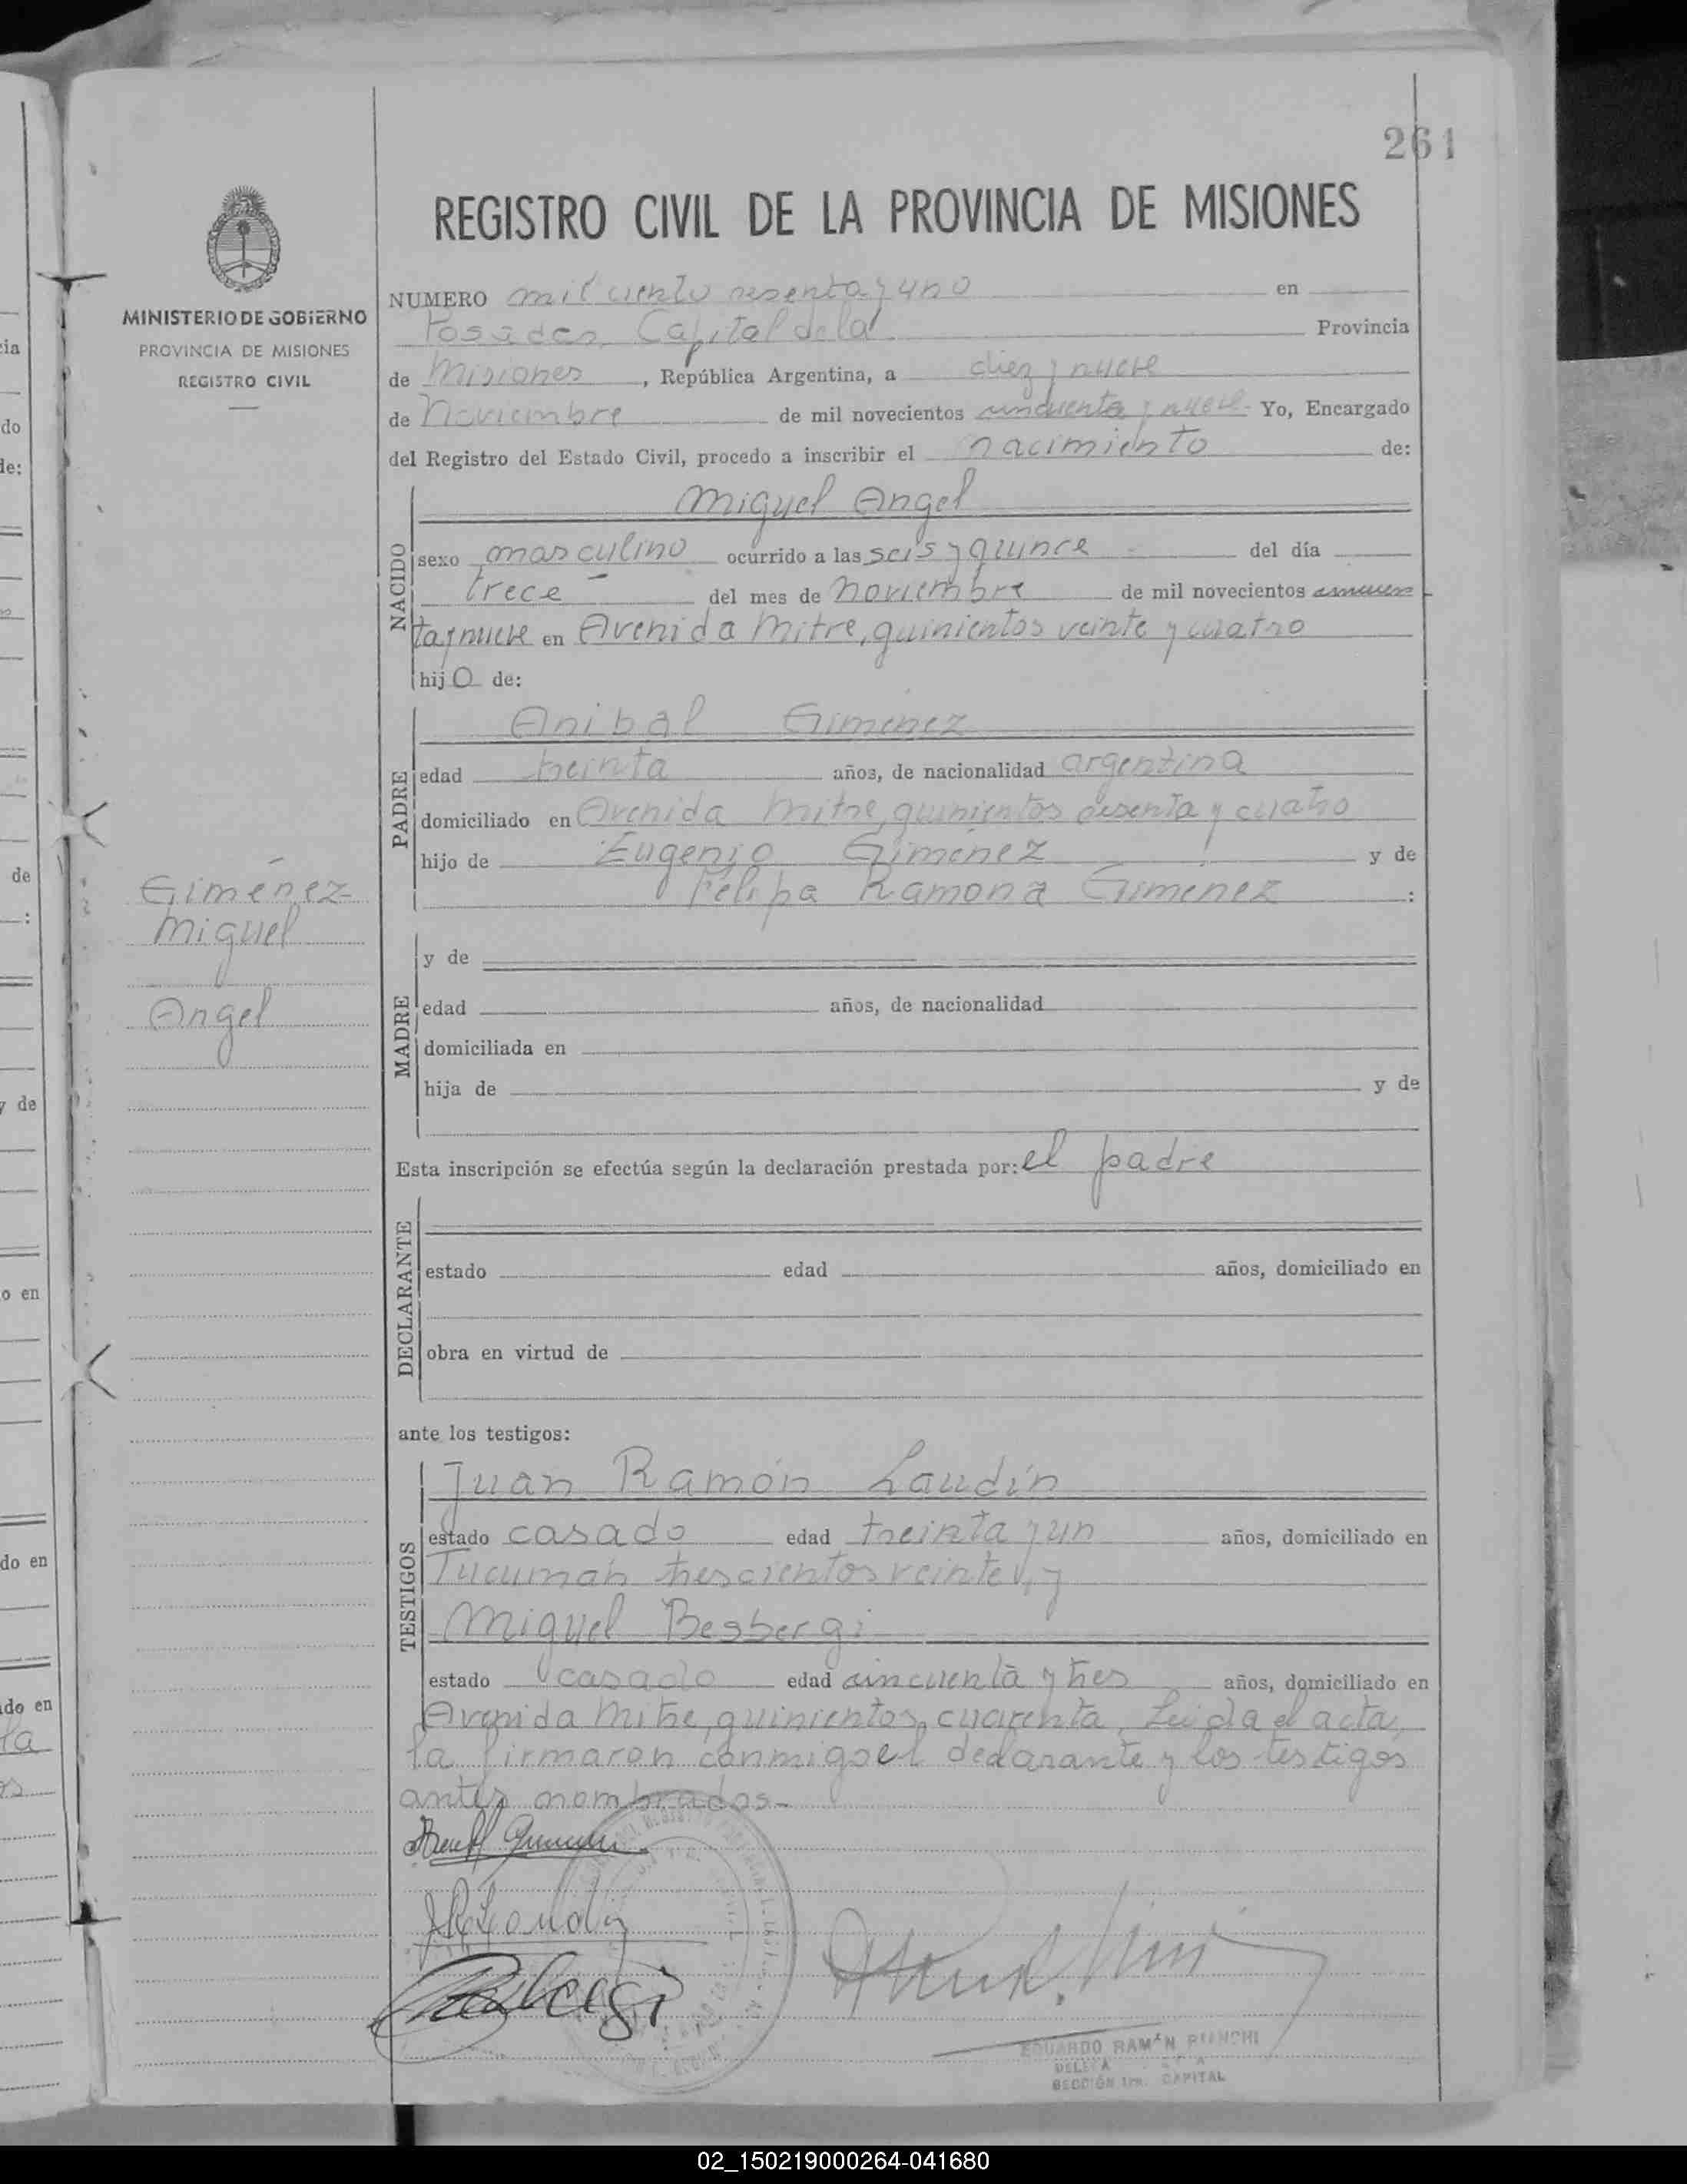 261
REGISTRO CIVIL DE LA PROVINCIA DE MISIONES
MINISTERIO DE GOBIERNO
PROVINCIA DE MISIONES
REGISTRO CIVIL
NUMERO mil ciento sesenta y uno en
Posadas Capital de la Provincia
de Misiones, República Argentina, a diez y nueve
de Noviembre de mil novecientos cincuenta y nueve Yo, Encargado
del Registro del Estado Civil, procedo a inscribir el nacimiento de:
NACIDO
Miguel Angel
sexo masculino ocurrido a las seis y quince del día
trece del mes de noviembre de mil novecientos cincuen
ta y nueve en Avenida Mitre, quinientos veinte y cuatro
hijo de:
PADRE
Anibal Gimenez
edad treinta años, de nacionalidad argentina
domiciliado en Avenida Mitre, quinientos sesenta y cuatro
hijo de Eugenio Gimenez y de
Felipa Ramona Gimenez :
Gimenez
Miguel
Angel
MADRE
y de
edad años, de nacionalidad
domiciliada en
hija de y de
Esta inscripción se efectúa según la declaración prestada por: el padre
DECLARANTE
estado edad años, domiciliado en
obra en virtud de
ante los testigos:
TESTIGOS
Juan Ramón Laudín
estado casado edad treinta y un años, domiciliado en
Tucumán trescientos veinte, y
Miguel Besbergi
estado casado edad cincuenta y tres años, domiciliado en
Avenida Mitre, quinientos cuarenta. Leida el acta,
la firmaron conmigo el declarante y los testigos
antes nombrados.-
EDUARDO RAMÓN BIANCHI
SECCIÓN 1ra. CAPITAL
cia
do
de:
de
:
y de
o en
do en
do en
la
02_150219000264-041680